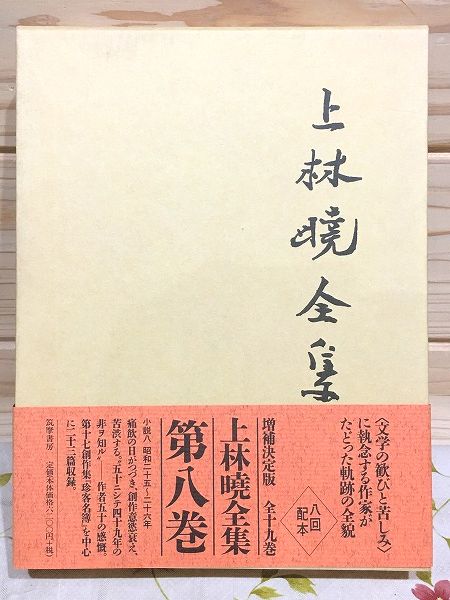 上林曉全集
〈文学の歓びと苦しみ〉
に執念する作家が
たどった軌跡の全貌
増補決定版 全十九巻
八回
配本
上林曉全集
第八巻
小説八 昭和二十五〜二十六年
痛飲の日がつづき、創作意慾衰え、
苦渋する。〝五十ニシテ四十九年の
非ヲ知ル〟 作者五十の感慨。
第十七創作集『珍客名簿』を中心
に二十三篇収録。
筑摩書房 定価本体価格六二〇〇円(+税)